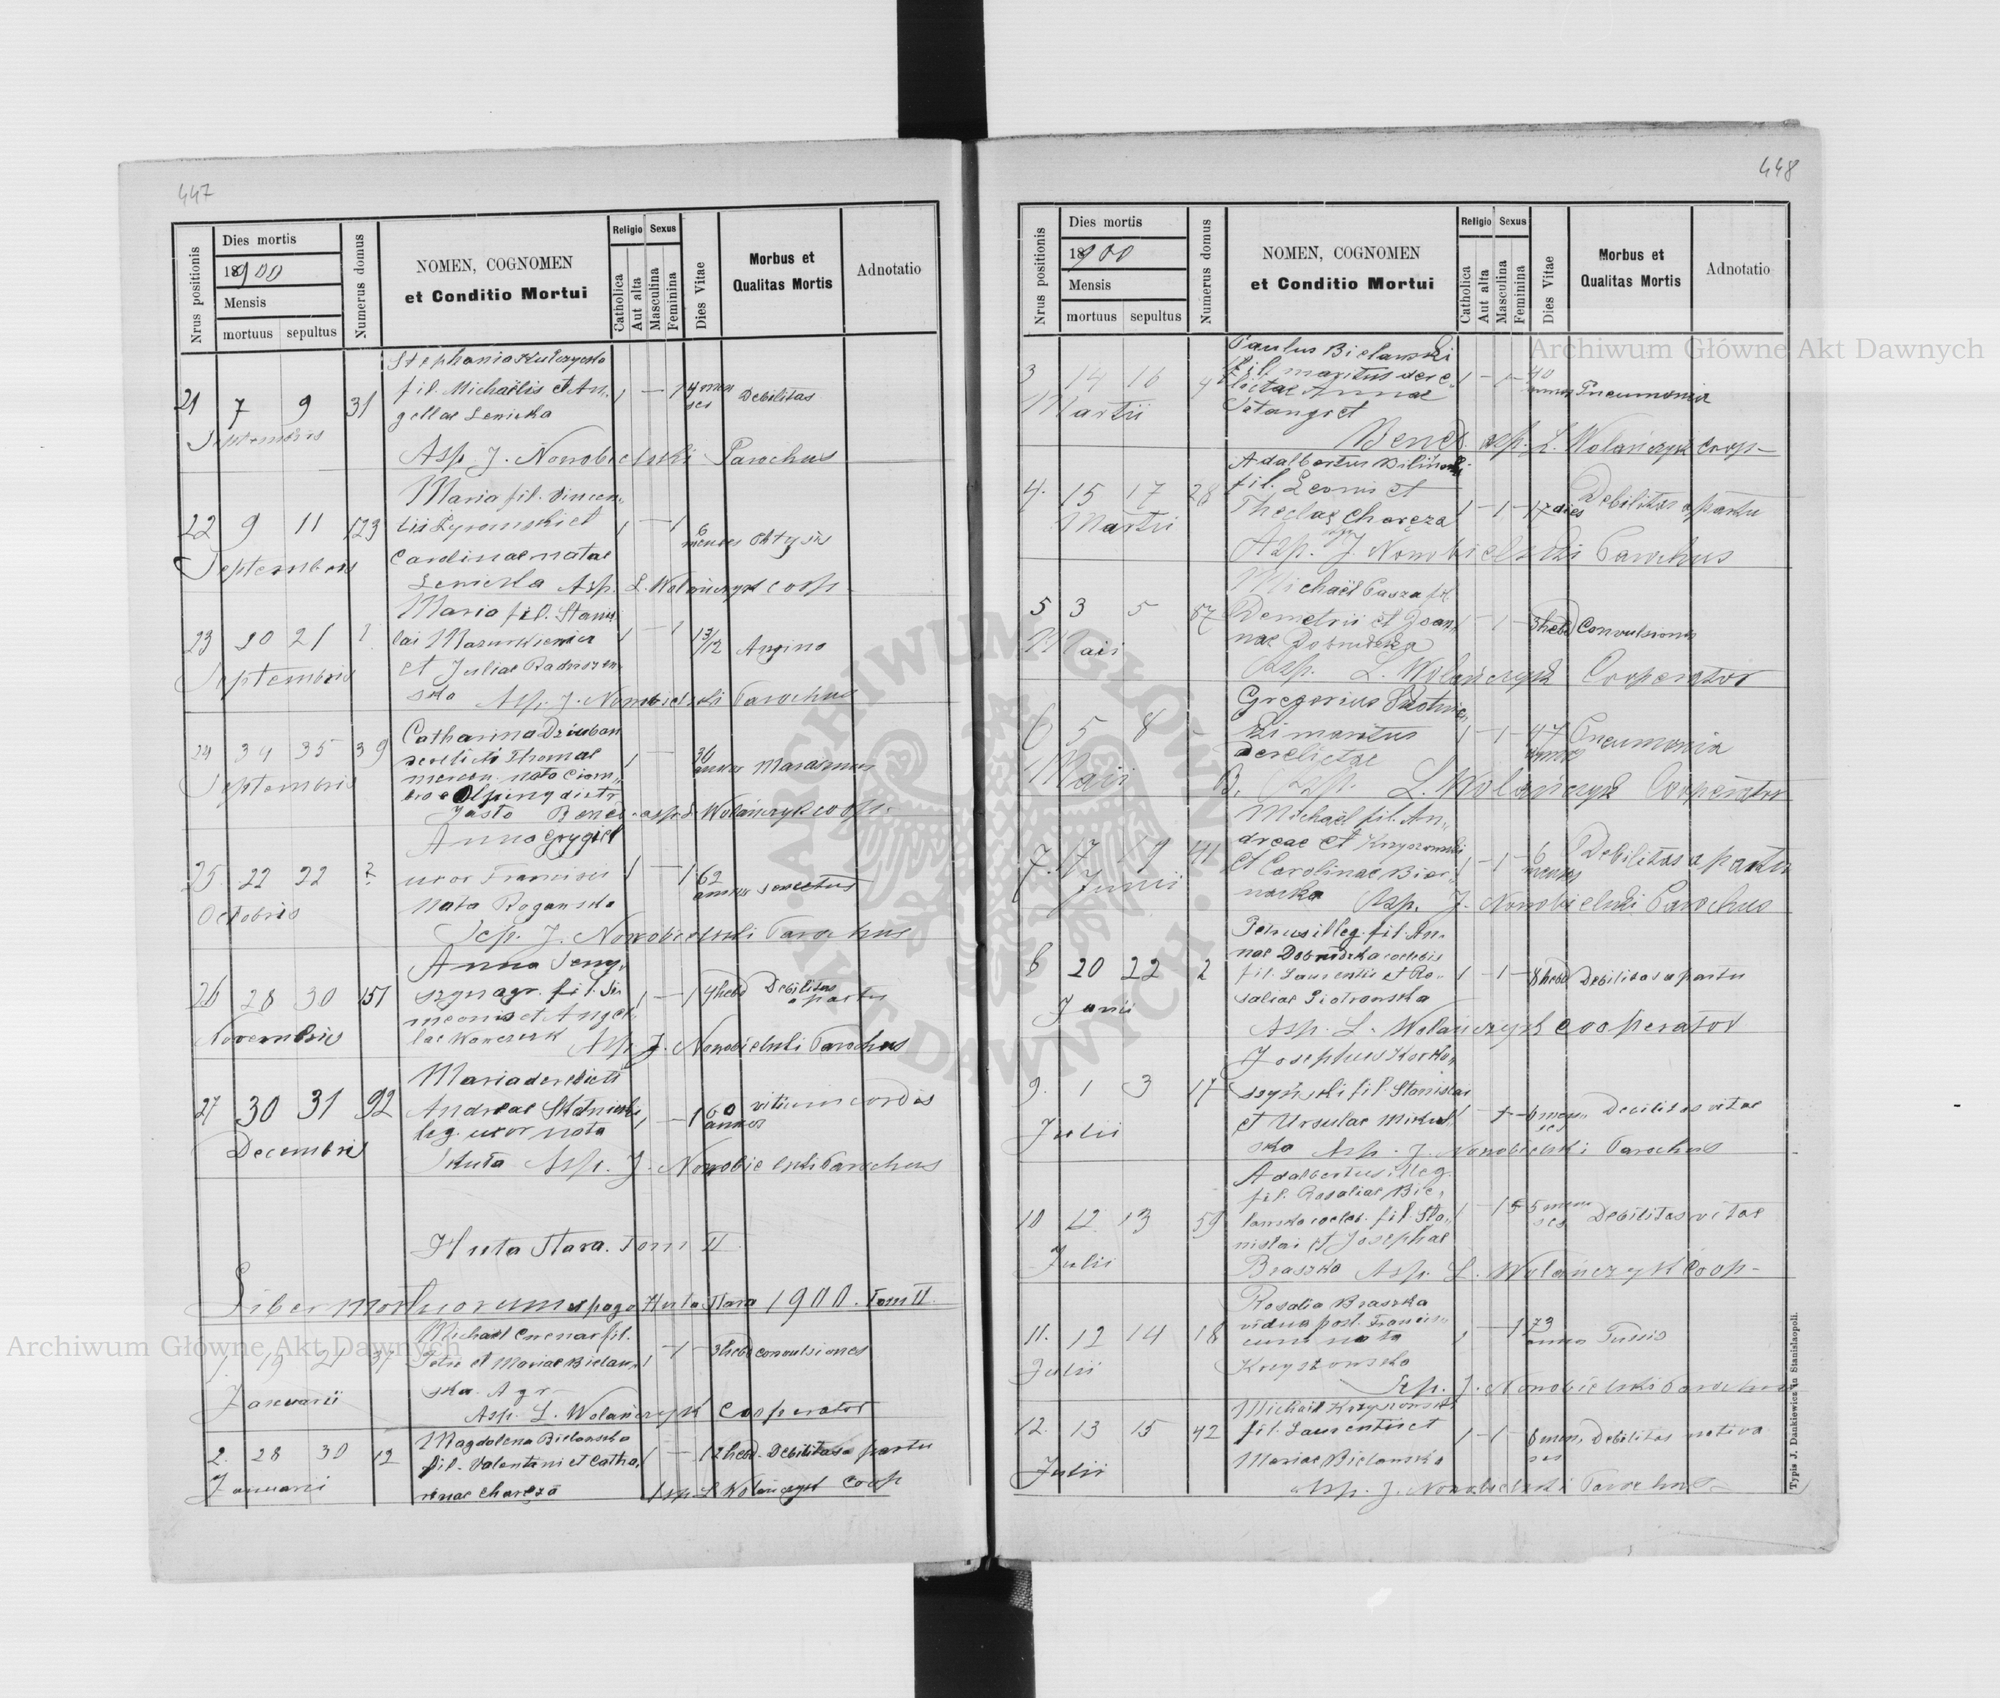 447
Nrus positionis
Dies mortis
1900
Mensis
mortuus sepultus
Numerus domus
NOMEN, COGNOMEN
et Conditio Mortui
Religio Sexus
Catholica
Aut alta
Masculina
Feminina
Dies Vitae
Morbus et
Qualitas Mortis
Adnotatio
Stephania Kulczycka
fil. Michaëlis et An,
21 7 9 31 1 — 1 4 men
ses Debilitas
gellae Lenicka
Septembris
Asp. J. Nowobielski Parochus
Maria fil. Vincen,
22 9 11 123 1 — 1 6
menses Phtysis
Septembris
Carolinae natae
Lenicka Asp. L. Wolańczyk coop
Maria fil. Stanis
23 20 21 lai Mazurkiewicz 1 — 1 Angina
et Juliae
Septembris
ska Asp. J. Nowobielski Parochus
Catharina Dziuban
24 34 35 39 derelicta Thomae 1 —
annos Marasmus
Septembris
Bened. asp. L. Wolańczyk coop.
Anna Grygiel
25 22 22 ? uxor Francisci 1 — 1 62
annos senectus
Octobris
nata Roganska
Sep. J. Nowobielski Parochus
Anna Seny,
26 28 30 151 szyn agr. fil. Si 1 — 1 4 hebd Debilitas
a partu
meonis et Angel
Novembris
Asp. J. Nowobielski Parochus
Maria derelicti
27 30 31 92 Andreae 1 — 1 60
annos vitium cordis
leg. uxor nata
Decembris
Huta Asp. J. Nowobielski Parochus
Huta Stara. Tom II
Liber mortuorum e pago Huta Stara 1900. Tom II.
Michaël fil.
1. 19 21 37 Petri et Mariae Bielan, 1 — 1 — 3 hebd convulsiones
ska. Agr
Januarii
Asp. L. Wolańczyk Cooperator
Magdalena Bielanska
2. 28 30 12 fil. Valentini et Catha, 1 — 1 2 hebd. Debilitas a partu
Januarii
rinae Charęza Asp L Wolańczyk Coop
448
Nrus positionis
Dies mortis
1900
Mensis
mortuus sepultus
Numerus domus
NOMEN, COGNOMEN
et Conditio Mortui
Religio Sexus
Catholica
Aut alta
Masculina
Feminina
Dies Vitae
Morbus et
Qualitas Mortis
Adnotatio
Paulus Bielanski
3 14 16 4 fil. maritus dere, 1 — 1 — 40
annos Pneumonia
lictae Annae
Martii
Tatangret
Bened. asp. L. Wolańczyk Coop—
Adalbertus
fil. Leonis et
4. 15 17 28 Theclae Charęza 1 — 1 — 17 dies Debilitas a partu
Martii
Asp. J Nowobielski Parochus
Michaël Pasza fil.
5 3 5 87 Demetrii et Joan, 1 — 1 — 3 hebd Convulsiones
nae
Maii
Asp. L. Wolańczyk Cooperator
Gregorius
6 5 8 - ki maritus 1 — 1 — 47
annos Pneumonia
derelictae
Maii
B. Asp. L. Wolańczyk Cooperator
Michaël fil. An,
dreae et Krzyszowski
7. 17 19 41 et Carolinae Bier, 1 — 1 — 6
menses Debilitas a partu
Junii
nacka Asp. J. Nowobielski Parochus
Petrus illeg. fil. An,
nae
8 20 22 2 fil. Laurentii et Ro, 1 — 1 — 8 hebd Debilitas a partu
saliae Piotrowska
Junii
Asp. L. Wolańczyk Cooperator
Josephus
9. 1 3 17 fil. Stanislai
et Ursulae 6 men,
ses Debilitas vitae
Julii
ska Asp. J. Nowobielski Parochus
Adalbertus illeg.
fil. Rosaliae Bie,
10 12 13 59 lanska caeleb. fil. Sta, 1 — 1 — 5 men
ses Debilitas vitae
nislai et Josephae
Julii
Braszka Asp. L. Wolańczyk Coop—
Rosalia Braszka
vidua post. Francis,
11. 12 14 18 cum nata 1 — 1 73
annos Tussis
Julii
Krzyszowska
Sep. J. Nowobielski Parochus
Michaël Krzyszowski
12. 13 15 42 fil. Laurentii et 1 — 1 — 6 men,
ses Debilitas nativa
Mariae Bielanska
Julii
Asp. J. Nowobielski Parochus
Typis J. Dankiewicz in Stanislaopoli.
Archiwum Główne Akt Dawnych
Archiwum Główne Akt Dawnych
ARCHIWUM GŁÓWNE
AKT DAWNYCH